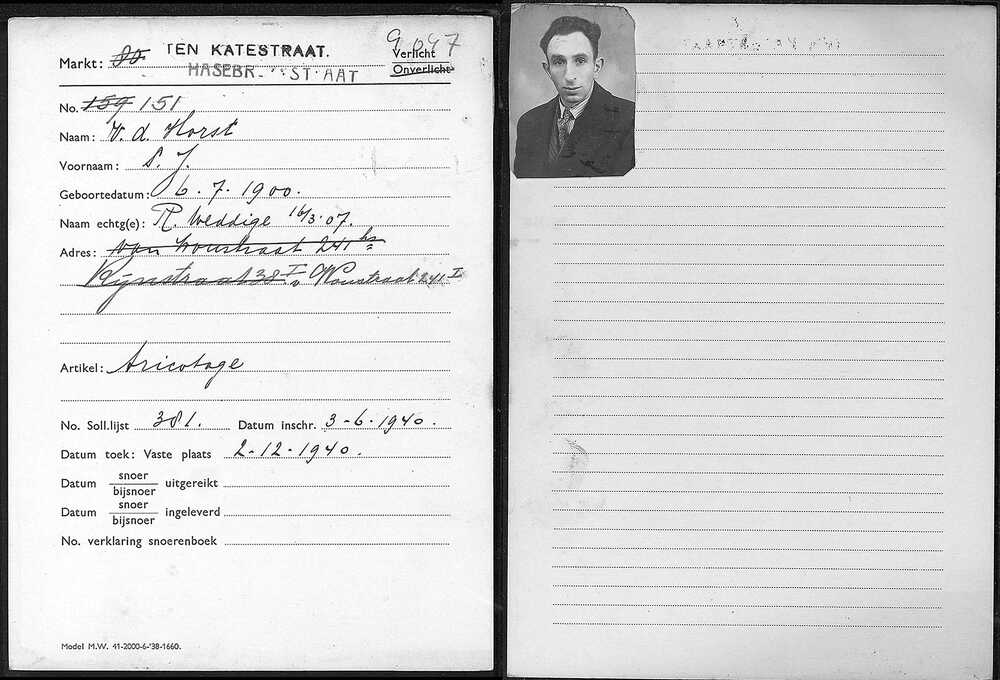 9 1347
Markt: 80 TEN KATESTRAAT. Verlicht
HASEBR STRAAT Onverlicht
No. 159 151
Naam: V. d. Horst
Voornaam: S. J.
Geboortedatum: 6. 7. 1900.
Naam echtg(e): R. Weddige 16/3.07.
Adres: van Woustraat 241 hs
Rijnstraat 38 I v Woustraat 241 I
Artikel: Tricotage
No. Soll.lijst 381. Datum inschr. 3-6-1940.
Datum toek: Vaste plaats 2-12-1940.
Datum snoer/bijsnoer uitgereikt
Datum snoer/bijsnoer ingeleverd
No. verklaring snoerenboek
Model M.W. 41-2000-6-'38-1660.